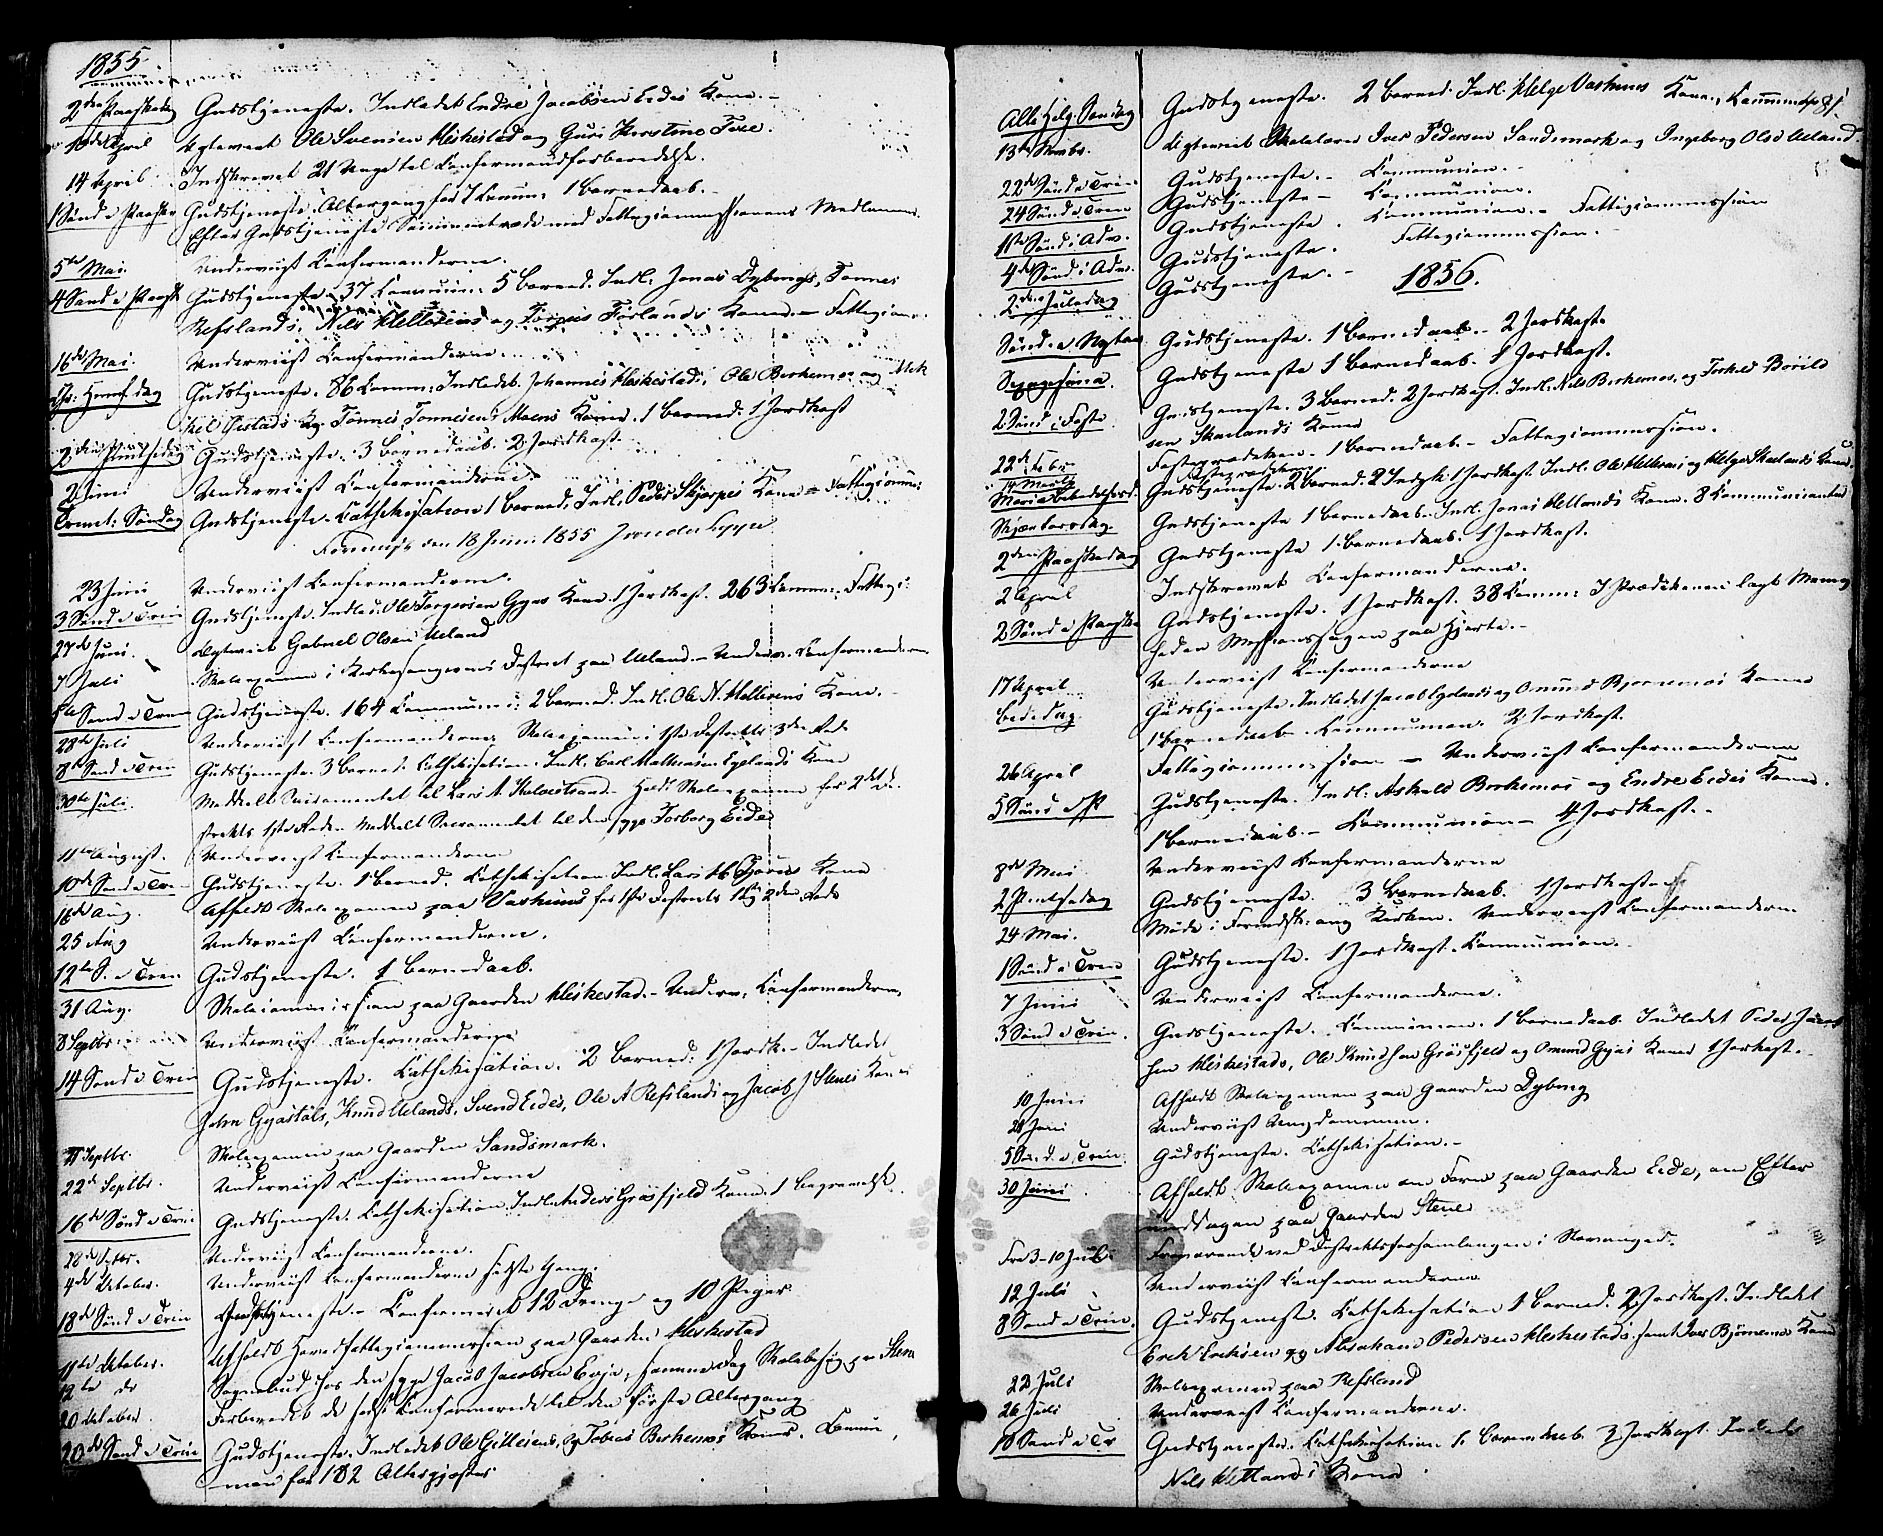 1855
2den Paaskedag Gudstjeneste. Indledet Endre Jacobsen Eides Kone.
10de April Ægteviet Ole Svensen Heskestad og Guri Kirstine
14 April Indskrevet 21 Unge til Confirmandforberedelse.
1 Sønd e Paaske Gudstjeneste. Altergang for 7 Comm: 1 Barnedaab.
Efter Gudstjeneste med Fattigcommissionens Medlemmer.
5te Mai. Underviist Confirmanderne.
4 Sønd e Paaske Gudstjeneste. 37 Commun: 5 Barned. Indl: Jonas Dybings, Tønnes
Refslands, Nils Hellesens og Førlands Koner. Fattigcom.
16de Mai. Underviist Confirmanderne.
Gudstjeneste. 86 Comm: Indledet Johannes Heskestads, Ole Birkemos og
Tønnes Tønnesens Moens Koner. 1 Barned. 1 Jordkast
2den Pintsedag Gudstjeneste. 3 Barnedaab. 2 Jordkast.
2 Juni Underviist Confirmanderne.
Trinit: Søndag Gudstjeneste. Cathekisation 1 Barned, Indl. Peder Skjerpes Kone Fattigcomm:
den 18 Juni 1855
23 Juni Underviist Confirmanderne.
3 Sønd e Trin Gudstjeneste. Indled. Ole Torgersen Gyas Kone. 1 Jordkast. 263 Commun. Fattigc:
27de Juni. Ægteviet Gabriel Olsen Ueland
7 Juli Skoleexamen i Kirkesangerens District paa Ueland. Underv. Confirmanderne
Sønd e Trin Gudstjeneste. 164 Commun: 2 Barned. Indl. Ole N. Hellesens Kone.
28de Juli Underviist Confirmanderne. Skoleexamen i 1ste Districts 3die Rode
8de Sønd e Trin Gudstjeneste. 3 Barned. Cathekisation. Indl. Carl Mathiesen Egelands Kone
30te Juli. Meddelt Sacramentet til Lars A. Holdt Skoleexamen for 2det Di-
strikts 1ste Rode. Meddelt Sacramentet til den syge Torborg Eide
11te August. Underviist Confirmanderne
10de Sønd e Trin Gudstjeneste. 1 Barned. Cathekisation. Indl. Lars Kone
16de Aug. Afholdt Skoleexamen paa Vashuus for 1ste Districts 1 og 2den Rode
25 Aug Underviist Confirmanderne.
12te S. e Trin. Gudstjeneste. 1 Barnedaab.
31 Aug. Skolecommission paa Gaarden Heskestad. Underv. Confirmanderne.
8 Septbr Underviist Confirmanderne
14 Sønd e Trin Gudstjeneste. Cathekisation. 2 Barned: 1 Jordk. Indledet
John Gyastøls, Knud Uelands, Svend Eides, Ole A Refslands og Jacob J Stenes Koner
21 Septbr. Skoleexamen paa Gaarden Sandsmark.
22de Septbr. Underviist Confirmanderne
16de Sønd e Trin Gudstjeneste. Cathekisation. Indl. Anders Grøsfjeld Kone. 1 Begravelse.
28de Septbr. Underviist Confirmanderne.
4de October. Underviist Confirmanderne sidste Gang.
18de Sønd e Trin Gudstjeneste. Confirmeret 12 Drenge og 10 Piger
11te October. Afholdt Herredsfattigcommission paa Gaarden Heskestad
12te do Sognebud hos den syge Jacob Jacobsen Eeje, samme Dag Skolebesøg paa Stene
20 October. Forberedt de sidst Confirmerede til den første Altergang
20de Sønd e Trin Gudstjeneste. Indledet Ole Gillesens, og Tobias Birkemos Koner. Commu
nion for 182 Altergjæster
81.
Alle Helg. Søndag Gudstjeneste. 2 Barned. Indl. Helge Vashuus Kone, Communion
13de Novbr. Ægteviet Skolelærer Iver Pedersen Sandsmark og Ingeborg Olsd Ueland.
22de Sønd e Trin Gudstjeneste. Communion.
24 Sønd e Trin Gudstjeneste Communion.
1ste Sønd i Adv. Gudstjeneste. Communion. Fattigcommission
4de Sønd i Adv. Gudstjeneste. Fattigcommission.
2den Juledag Gudstjeneste.
1856.
Sønd. e. Nytaar Gudstjeneste. 1 Barnedaab. 2 Jordkast.
Gudstjeneste 1 Barnedaab. 1 Jordkast.
2 Sønd i Faste Gudstjeneste. 3 Barned. 2 Jordkast. Indl. Nils Birkemos, og Torkel Børild
sen Skarlands Koner
22de Febr. Fasteprædiken. 1 Barnedaab. Fattigcommission.
14 Marts Fasteprædiken
Mariæ Bebudelsesd. Gudstjeneste. 2 Barned. 1 Jordkast Indl. Ole Hellesens og Helge Skarlands Koner
Skjærtorsdag. Gudstjeneste 1 Barnedaab. Indl. Jonas Hetlands Kone. 8 Kommunicanter
2den Paaskedag Gudstjeneste 1 Barnedaab. 1 Jordkast.
2 April Indskrevet Confirmanderne.
2 Sønd e Paaske Gudstjeneste. 1 Jordkast. 38 Comm: I Prædikenen lagt Menig
heden Missionssagen paa Hjerte.
17 April Underviist Confirmanderne
Bededag. Gudstjeneste. Indledet Jacob Egelands og Omund Bjørnemos Koner
1 Barnedaab Communion. 2 Jordkast.
26 April Fattigcommission Underviist Confirmanderne
5 Sønd e P. Gudstjeneste. Indl: Askild Birkemos og Endre Eides Koner.
1 Barnedaab. Communion 4 Jordkast.
8de Mai Underviist Confirmanderne
2 Pintsedag Gudstjeneste. 3 Barnedaab. 1 Jordkastelse
24 Mai. Møde i Kirken. Underviist Confirmanderne
1 Sønd e Trin Gudstjeneste. 1 Jordkast. Communion.
7 Juni Underviist Confirmanderne.
3 Sønd e Trin. Gudstjeneste. Communion. 1 Barnedaab. Indledet Peder Jacob
sen Heskestads, Ole Knudsen Grøsfjeld og Omund Gyas Koner 1 Jordkast.
10 Juni Afholdt Skoleexamen paa Gaarden Dybing
21 Juni Underviist Ungdommen.
5 Sønd. e. Trin. Gudstjeneste. Cathekisation.
30 Juni Afholdt Skoleexamen om Form paa Gaarden Eide, om Efter
middagen paa Gaarden Stene
Fra 3-10 Juli Fraværende ved Distriktsforsamlingen i Stavanger.
12 Juli Underviist Confirmanderne
8 Sønd e Trin. Gudstjeneste. Cathekisation 1 Barned. 2 Jordkast. Indledet
Erik Eriksen og Abraham Pedersen Heskestads, samt Iver Bjørnemos Koner
22 Juli Skoleexamen paa Refsland
26 Juli Underviist Confirmanderne.
10 Sønd e Tr Gudstjeneste. Cathekisation. 1 Barnedaab 3 Jordkast. Indledet
Nils Hetlands Kone.